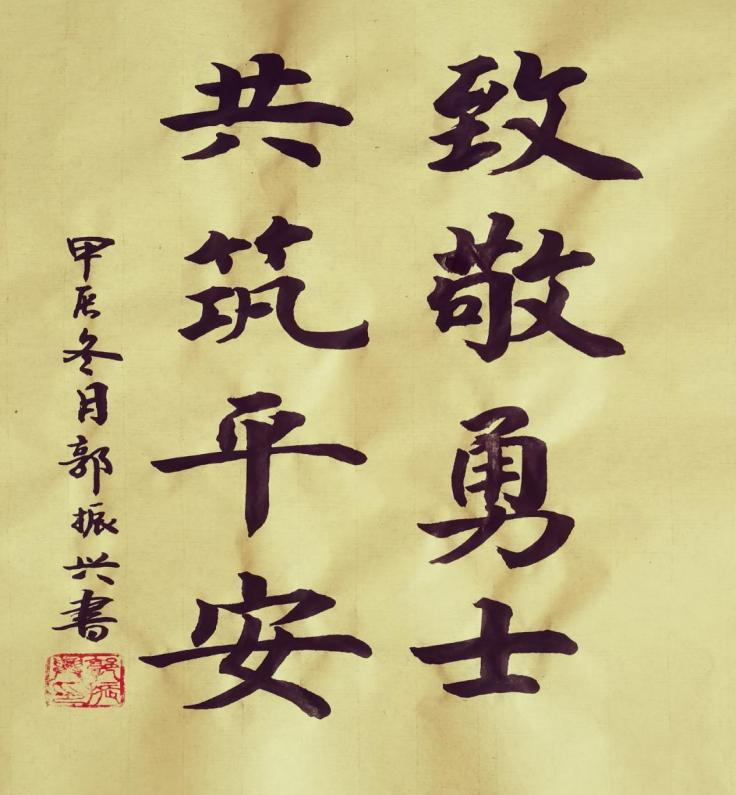 致敬勇士
共筑平安
甲辰冬月郭振兴書